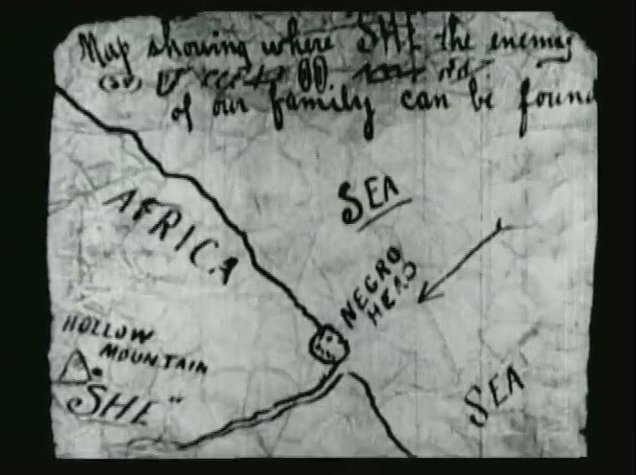 Map showing where SHE the enemy
of our family can be found
SEA
AFRICA
NEGRO
HEAD
HOLLOW
MOUNTAIN
"SHE"
SEA